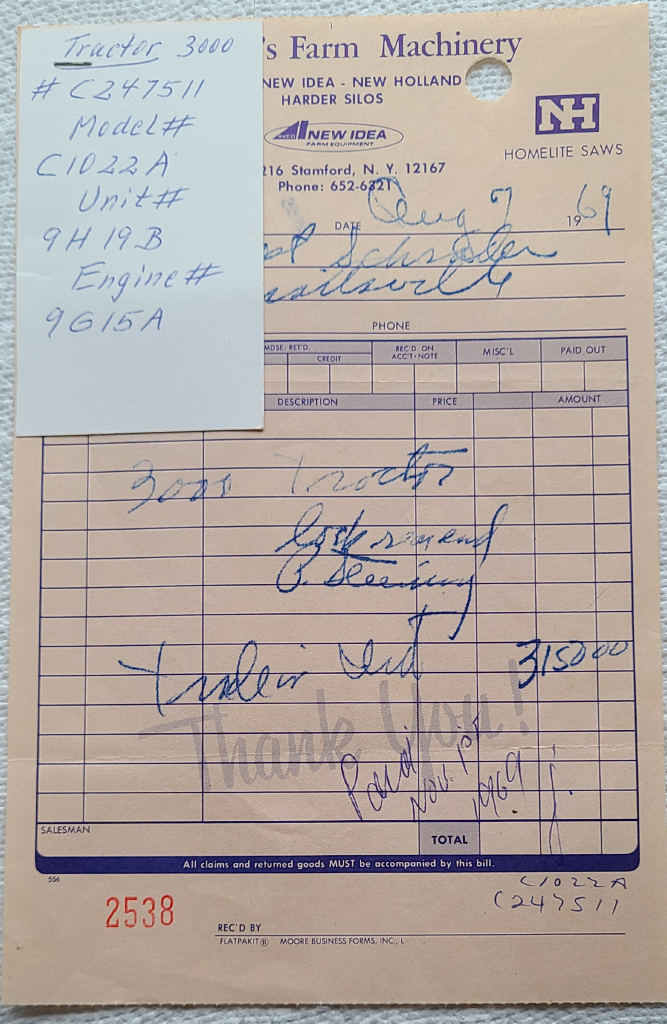 Tractor 3000
# C247511
Model#
C1022A
Unit#
9H19B
Engine#
9G15A
's Farm Machinery
NEW IDEA - NEW HOLLAND
HARDER SILOS
NH
AVCO NEW IDEA
FARM EQUIPMENT
HOMELITE SAWS
216 Stamford, N. Y. 12167
Phone: 652-6321
DATE Aug 7 1969
PHONE
MDSE. RET'D. REC'D ON ACC'T-NOTE MISC'L PAID OUT
CREDIT
DESCRIPTION PRICE AMOUNT
3000 Tractor
P. Steering
Trade in 315000
Thank You!
Paid
Nov. 1st
1969
SALESMAN
TOTAL
All claims and returned goods MUST be accompanied by this bill.
556
C1022A
C247511
2538
REC'D BY
FLATPAKIT® MOORE BUSINESS FORMS, INC., L